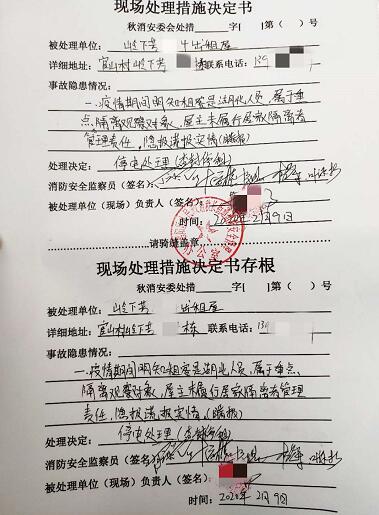 现场处理措施决定书
秋消安委会处措 字[ ]第( )号
被处理单位：岭下芳 出租屋
详细地址：宜山村岭下芳 联系电话：139
事故隐患情况：
一.疫情期间明知租客是湖北人员，属于重
点隔离观察对象，屋主未履行居家隔离者
管理责任，隐报谎报灾情（瞒报）
处理决定：停电处理（查封停租）
消防安全监察员（签名）：
被处理单位（现场）负责人（签名）
时间：2020年2月9日
请骑缝盖章
现场处理措施决定书存根
秋消安委处措 字[ ]第( )号
被处理单位：岭下芳 出租屋
详细地址：宜山村岭下芳 栋 联系电话：13
事故隐患情况：
一.疫情期间明知租客是湖北人员，属于重点
隔离观察对象，屋主未履行居家隔离者管理
责任，隐报谎报灾情（瞒报）
处理决定：停电处理（查封停租）
消防安全监察员（签名）：
被处理单位（现场）负责人（签名）：
时间：2020年2月9日